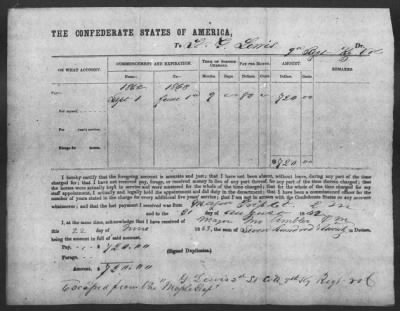 THE CONFEDERATE STATES OF AMERICA,
To Lewis Dr.
ON WHAT ACCOUNT. COMMENCEMENT AND EXPIRATION. TERM OF SERVICE CHARGED. PAY PER MONTH. AMOUNT. REMARKS.
From— To— Months. Days. Dollars. Cents. Dollars. Cents.
PAY—
1862 1863
Sept 1 June 1st 9 80 720 00
For myself,
For years' service,
FORAGE for horses,
$720 00
I hereby certify that the foregoing account is accurate and just; that I have not been absent, without leave, during any part of the time
charged for; that I have not received pay, forage, or received money in lieu of any part thereof, for any part of the time therein charged; that
the horses were actually kept in service and were mustered for the whole of the time charged; that for the whole of the time charged for my
staff appointments, I actually and legally held the appointment and did duty in the department; that I have been a commissioned officer for the
number of years stated in the charge for every additional five years' service; that I am not in arrears with the Confederate States on any account
whatsoever; and that the last payment I received was from Major
and to the 31 day of
I, at the same time, acknowledge that I have received of Major
this 22 day of June 1863, the sum of Seven hundred & twenty Dollars,
being the amount in full of said account.
Pay, - - $720.00
Forage, - -
Amount, - $720.00
(Signed Duplicates.)
Lewis 2d Lt Co Regt
Escaped from the "Maple Leaf"